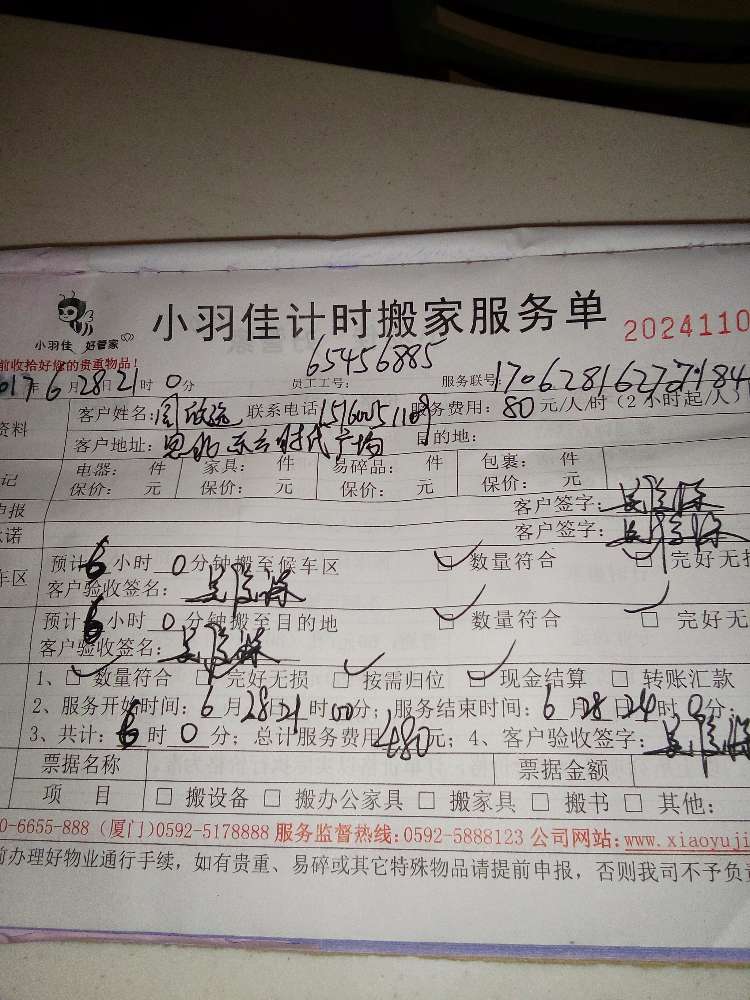 小羽佳 好管家
小羽佳计时搬家服务单
2024110
前收拾好您的贵重物品！
2017年6月28日21时0分 员工工号：65456885 服务联号：
资料 客户姓名： 联系电话 服务费用：80元/人/时（2小时起/人）
客户地址： 时代广场 目的地：
记 电器： 件 家具： 件 易碎品： 件 包裹： 件
保价： 元 保价： 元 保价： 元 保价： 元
申报 客户签字：
诺 客户签字：
车区 预计6小时 0分钟搬至候车区 □ 数量符合 □ 完好无损
客户验收签名：
预计6小时 0分钟搬至目的地 □ 数量符合 □ 完好无
客户验收签名：
1、□ 数量符合 □ 完好无损 □ 按需归位 □ 现金结算 □ 转账汇款
2、服务开始时间：6月28日21时00分；服务结束时间：6月28日24时0分；
3、共计：6时0分；总计服务费用480元；4、客户验收签字：
票据名称 票据金额
项 目 □ 搬设备 □ 搬办公家具 □ 搬家具 □ 搬书 □ 其他：
0-6655-888（厦门）0592-5178888 服务监督热线：0592-5888123 公司网站：www.xiaoyuji
前办理好物业通行手续，如有贵重、易碎或其它特殊物品请提前申报，否则我司不予负责